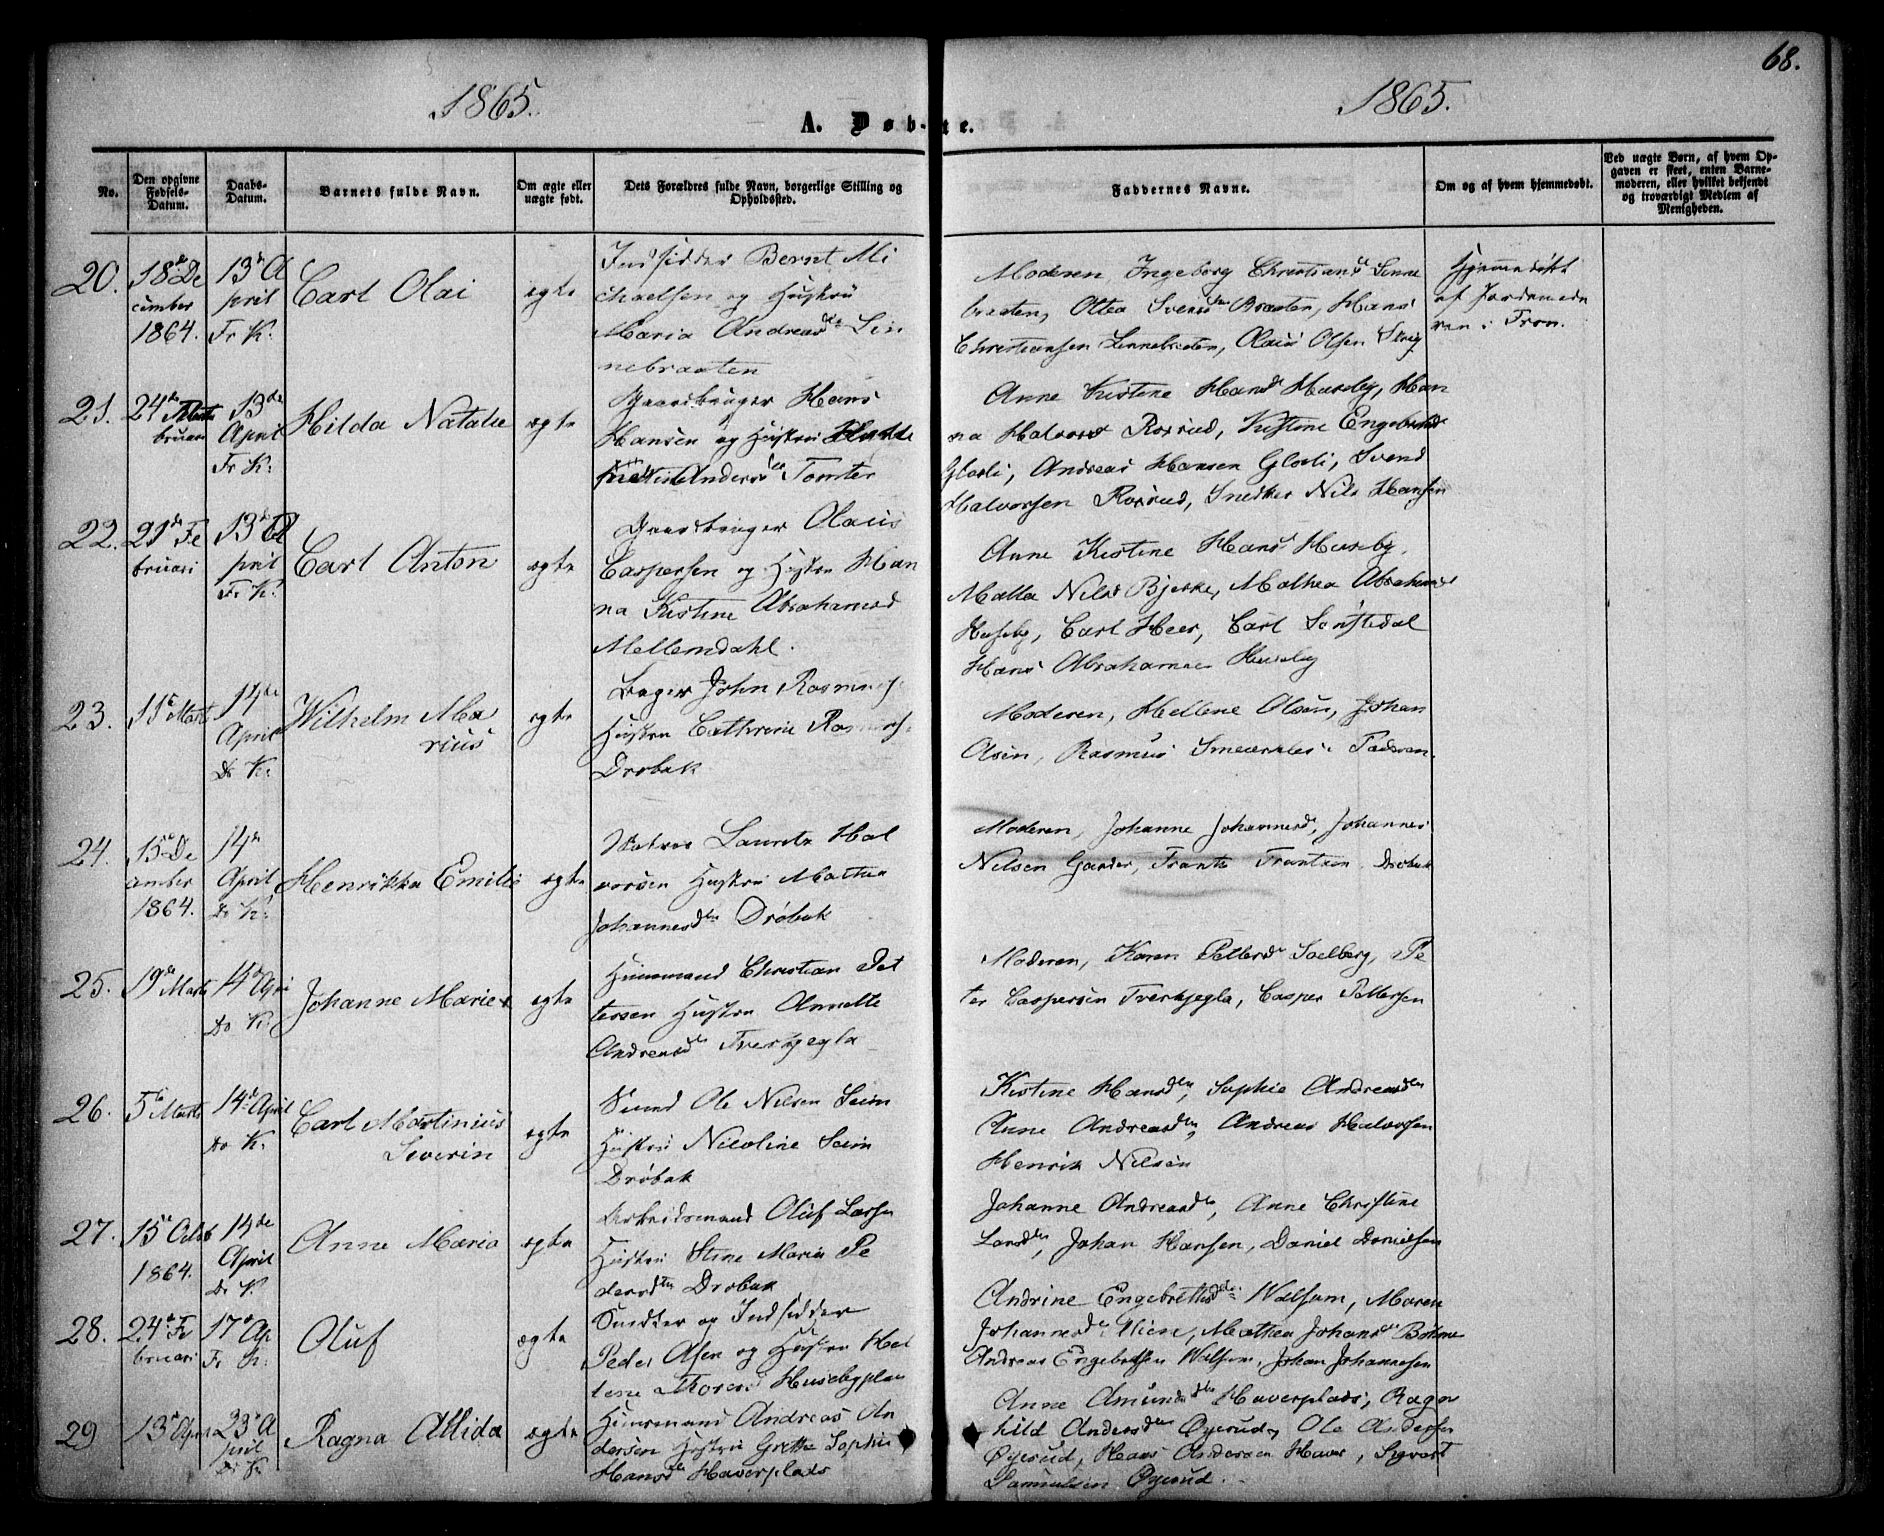 68.
1865.
1865.
A. Døb-te.
No.
Den opgivne Fødsels-Datum.
Daabs-Datum.
Barnets fulde Navn.
Om ægte eller uægte født.
Dets Forældres fulde Navn, borgerlige Stilling og Opholdssted.
Faddernes Navne.
Om og af hvem hjemmedøbt.
Ved uægte Børn, af hvem Opgaven er skeet, enten Barnemoderen, eller hvilket bekjendt og troværdigt Medlem af Menigheden.
20.
18de De
cember
1864.
13de A
pril
Fr K:
Carl Olai
ægte
Indsidder Bernt Mi
chaelsen og Hustru
Maria Andreasdtr Lin
nebraaten
Moderen Ingeborg Christiansd Linne
braaten, Oltea Svensd Braaten, Hans
Christiansen Linnebraaten, Olaus Olsen
Hjemmedøbt
af Jordemode
ren
21.
24de
bruari
13de
April
Fr K:
Hilda Natalie
ægte
Gaardbruger Hans
Hansen og Hustru
Andersdtr Tomter
Anne Kistine Hansd Huseby, Han
na Halvorsd Rosrud, Kistine Engebretsd
Glosli, Andreas Hansen Glosli, Svend
Halvorsen Rosrud, Snedker Nils Hansen
22.
21de Fe
bruari
13de A
pril
Fr K:
Carl Anton
ægte
Gaardbruger Olaus
Caspersen og Hustru Han
na Kistine Abrahamsd
Mellemdahl.
Anne Kistine Hansd Huseby,
Mathea Nilsd Bjerke, Mathea Abrahamsd
Huseby, Carl Heer, Carl
Hans Abrahamsen Huseby
23.
11te Marts
14de
April
Dr K:
Wilhelm Ma
rius
ægte
Bager John
Hustru Cathrine
Drøbak
Moderen, Hellene Olsen, Johan
Olsen, Rasmus Faderen.
24.
15de De
cember
1864.
14de
April
Dr K:
Henrikka Emilie
ægte
Lauritz Hal
vorsen Hustru Mathea
Johannesdtr Drøbak
Moderen, Johanne Johannesd, Johannes
Nilsen Garder, Frants Frantzen Drøbak
25.
19de Marts
14de Apri
Dr K:
Johanne Marie
ægte
Huusmand Christian Pet
tersen Hustru Annette
Andreasdtr Tverkjegla
Moderen, Karen Pettersd Solberg, Pe
ter Caspersen Tverkjegla, Casper Pettersen
26.
5te Marts
14de April
Dr K:
Carl Martinius
Severin
ægte
Ole Nilsen Seim
Hustru Nicoline Seim
Drøbak
Kistine Hansdtr, Sophie Andreasdtr
Anne Andreasdtr, Andreas Halvorsen
Henrik Nilsen
27.
15de Octob
1864.
14de
April
Dr K.
Anne Maria
ægte
Arbeidsmand Oluf Larsen
Hustru Stine Maria Pe
dersdtr Drøbak
Johanne Andreasdtr, Anne Christine
Larsdtr, Johan Hansen, Daniel Danielsen
28.
24de Fe
bruari
17de Ap
Fr K:
Oluf
ægte
og Indsidder
Peder Olsen og Hustru Hel
lene Thoresd Husebyplad
Andrine Engebretsdtr Walsum, Maren
Johannesd, Mathea Johansd
Andreas Engebretsen Walsum, Johan Johannesen
29
13de April
23de A
pril
Dr K.
Ragna Allida
ægte
Huusmand Andreas An
dersen Hustru Grethe Sophie
Hansdtr Haverplads
Anne Amundsdtr Haverplads, Ragn
hild Andersdtr Øyerud, Ole Andersen
Øyerud, Hans Andersen Haver, Syvert
Samuelsen Øyerud.